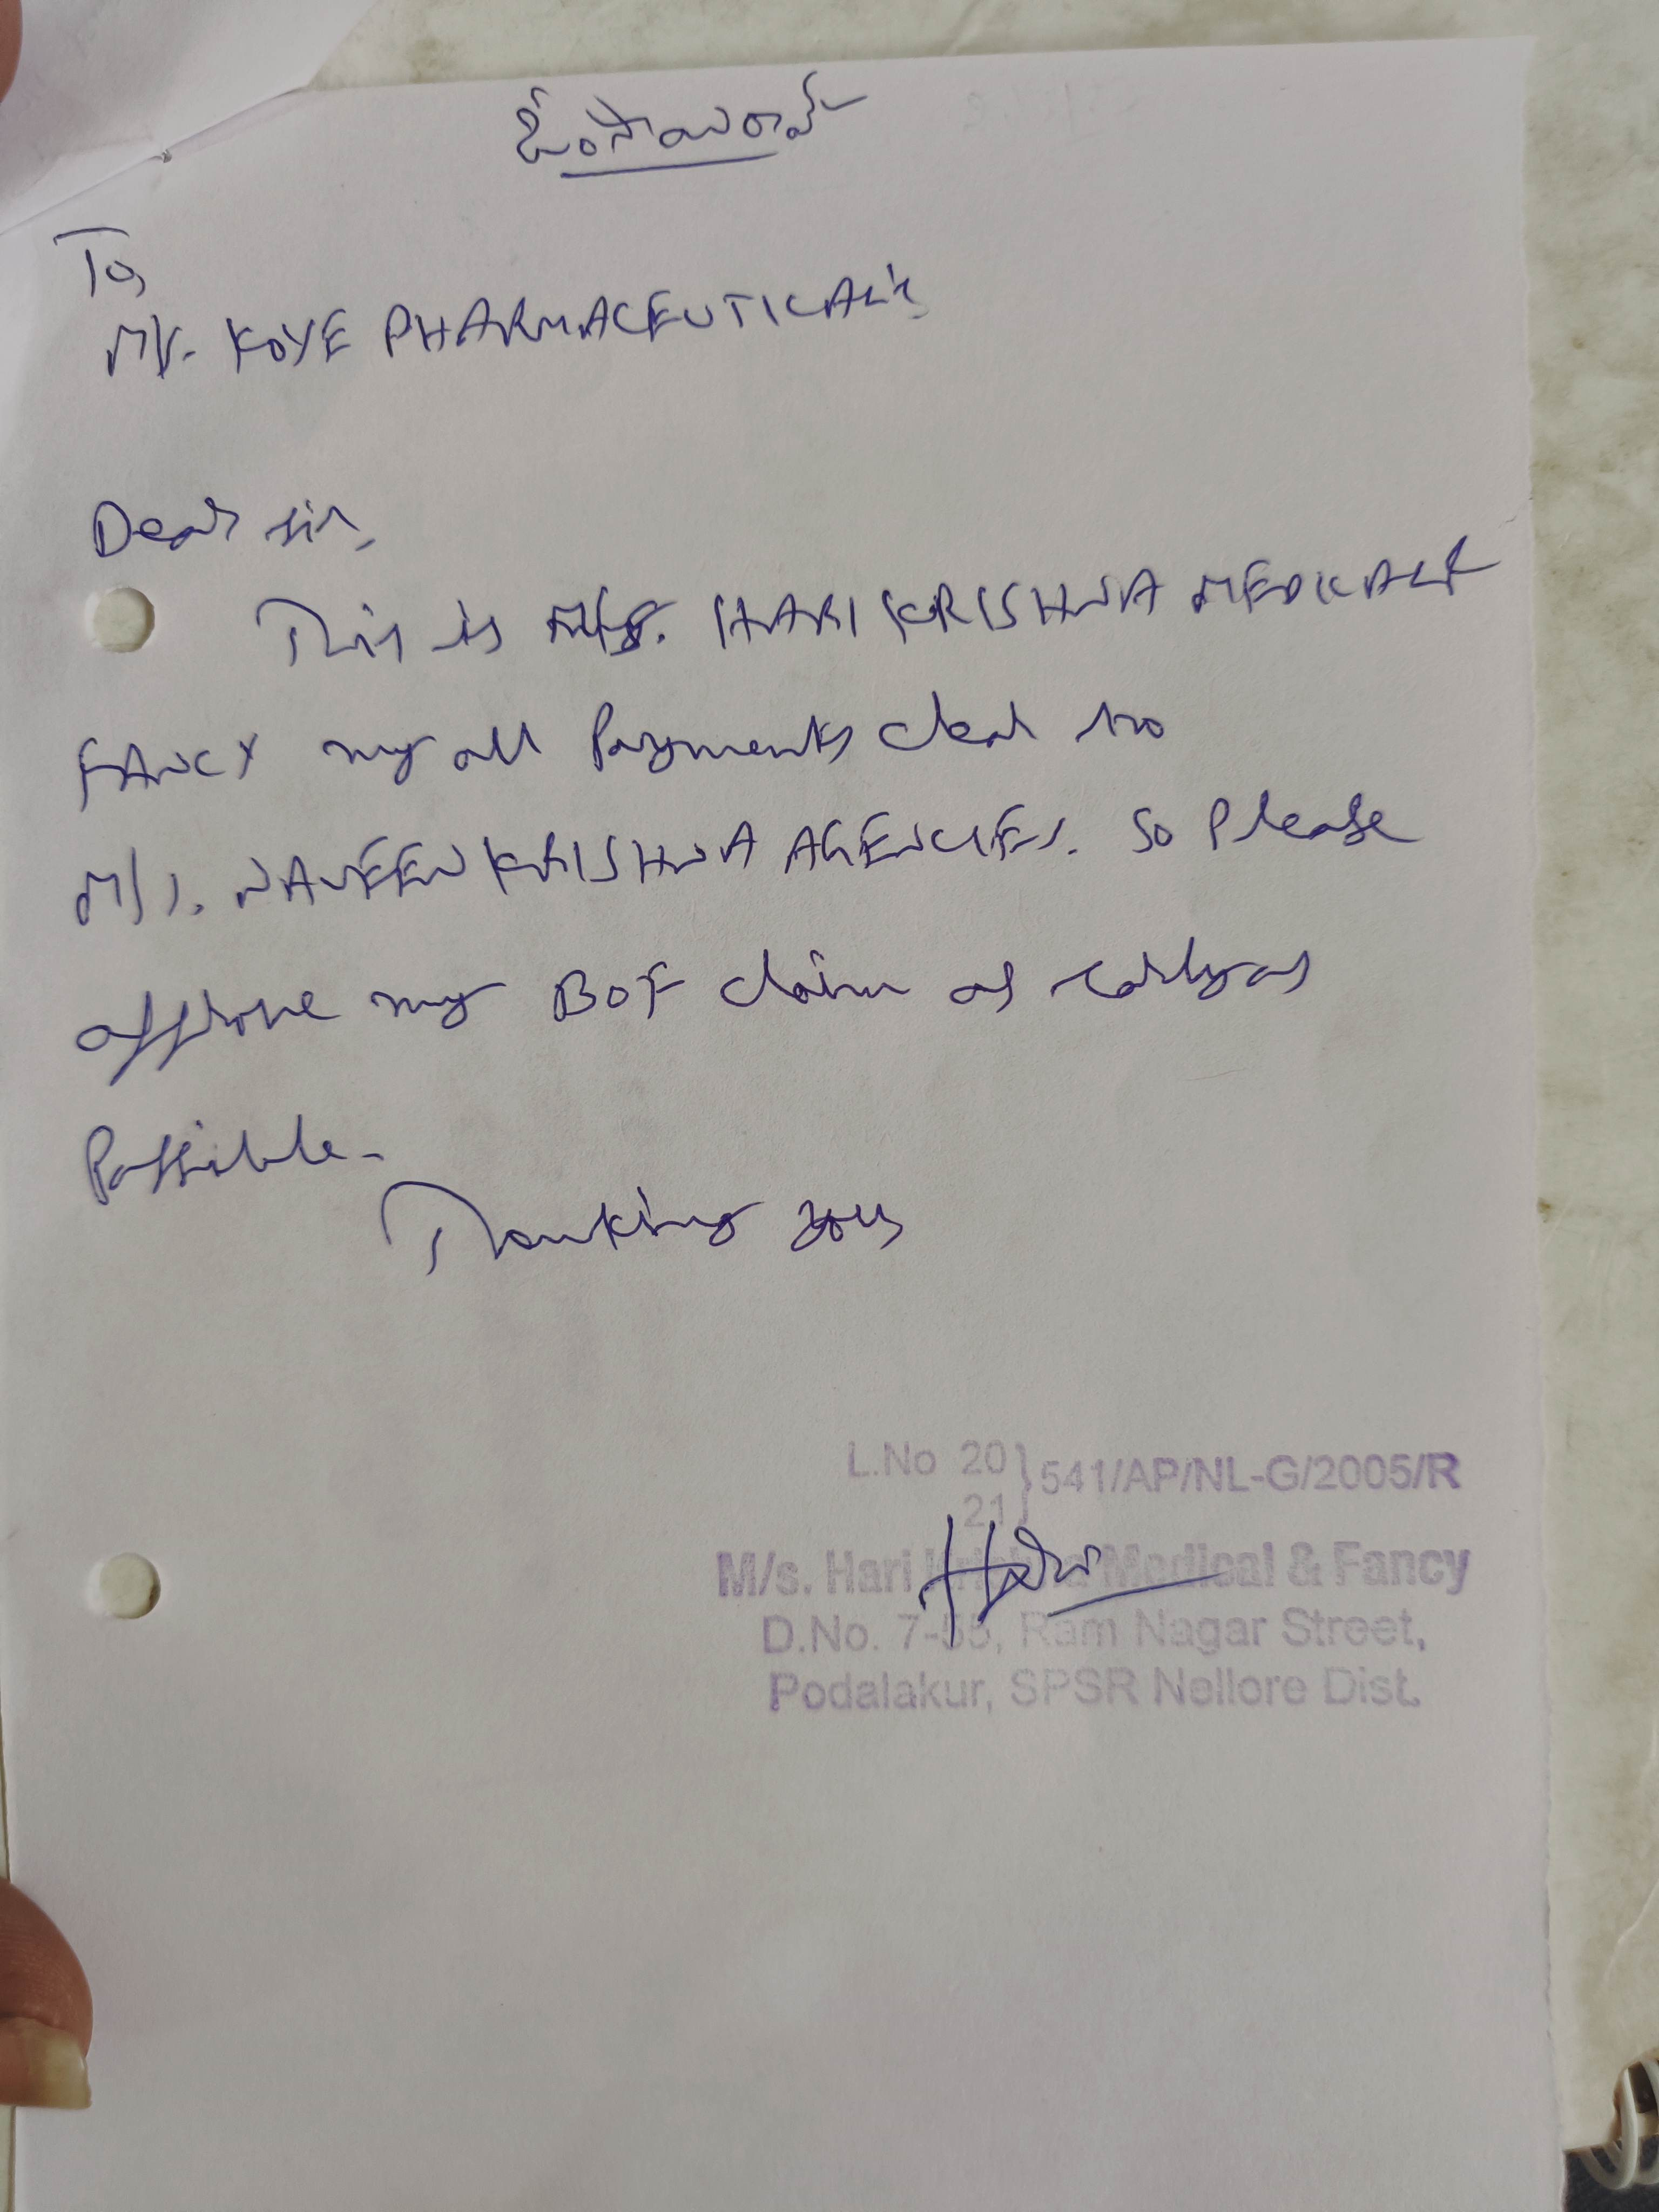 ఓం సాయిరామ్
To,
M/s. KOYE PHARMACEUTICALS
Dear sir,
This is M/s. HARI KRISHNA MEDICAL &
FANCY my all Payments clear to
M/s. NAVEEN KRISHNA AGENCIES. So Please
approve my BOF claim as early as
Possible.
Thanking you
L.No 20 } 541/AP/NL-G/2005/R
21
M/s. Hari Krishna Medical & Fancy
Hari
D.No. 7-55, Ram Nagar Street,
Podalakur, SPSR Nellore Dist.